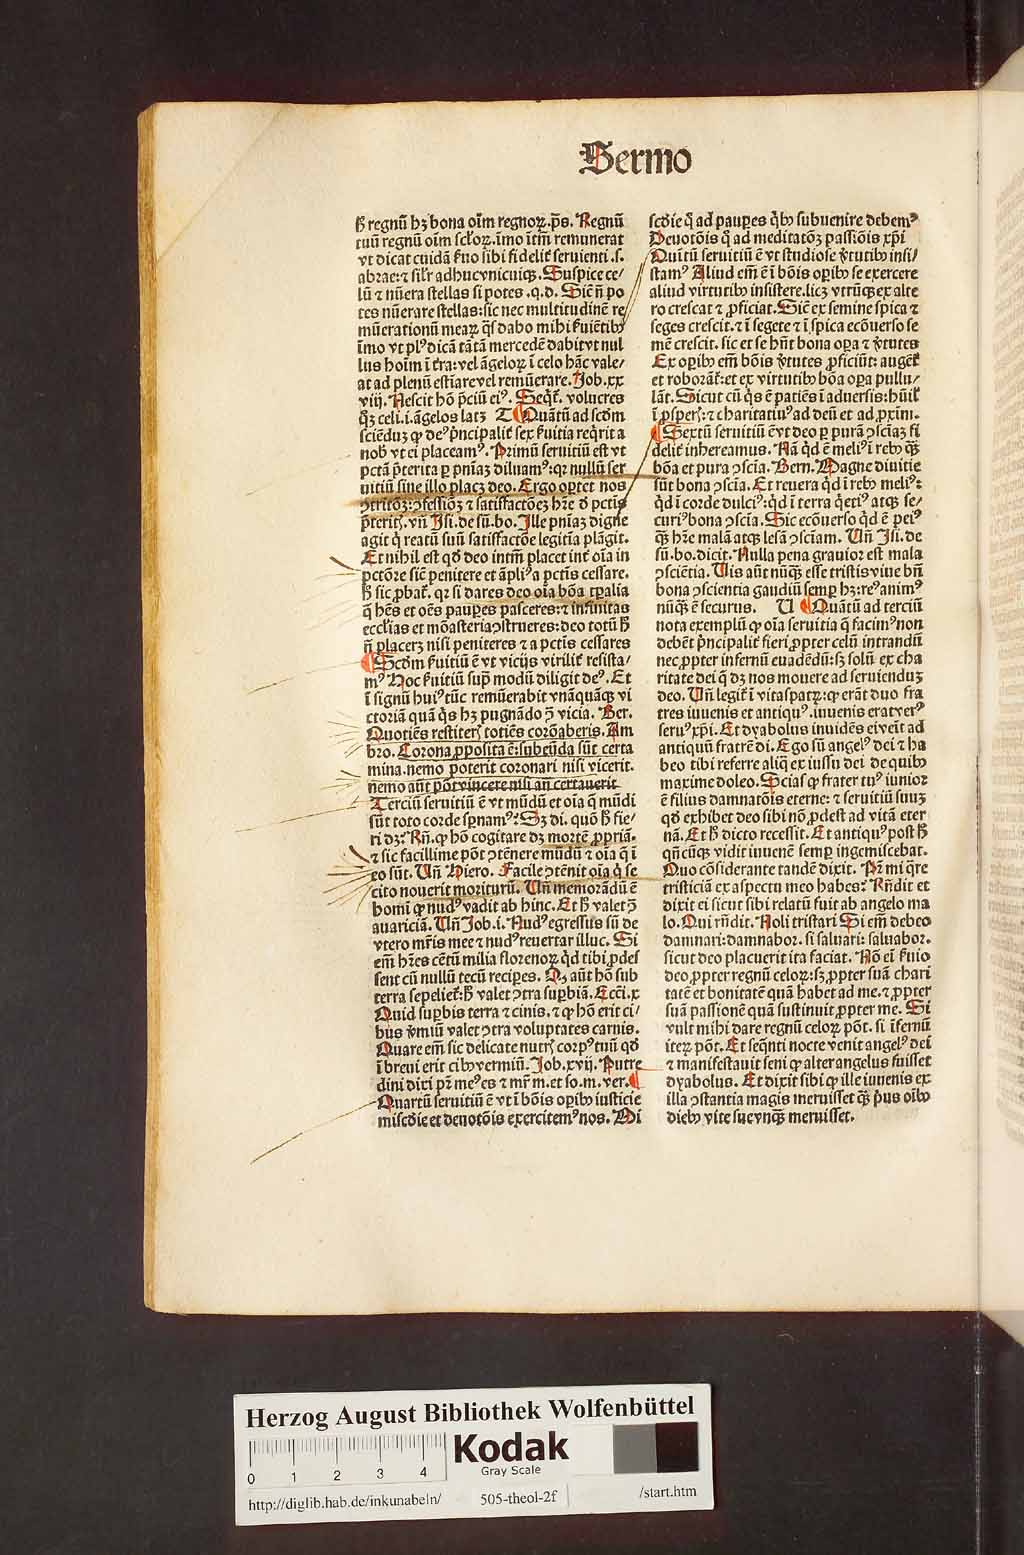 Sermo
hͦ regnū hꝫ bona oīm regnoꝝ.p̄s. Regnū
tuū regnū oīm sc̄loꝝ.īmo itm̄ remunerat
vt dicat cuidā ẜuo sibi fidelit̄ seruienti .s.
abrae: ⁊ sil̄r adhuc vnicuiqꝫ. Suspice ce/
lū ⁊ nūera stellas si potes .q.d. Sic̄ n̄ po
tes nūerare stellas: sic nec multitudinē re
mūerationū meaꝝ q̄s dabo mihi ẜuiētibꝰ
īmo vt plꝰ dicā tātā mercedē dabit vt nul
lus hoīm ī t̄ra: vel āgeloꝝ ī celo hāc vale/
at ad plenū estīare vel remūerare. Job.xx
viij. Nescit hō p̄ciū eiꝰ. Seqt̄. volucres
qꝫ celi .i. āgelos latꝫ T Quātū ad scd̄m
sciēduꝫ ꝙ deꝰ p̄ncipalit̄ sex ẜuitia reqͥrit a
nobꝰ vt ei placeamꝰ. Primū seruitiū est vt
pctā p̄terita ꝑ pn̄iaꝫ diluamꝰ: qꝛ nullū ser
uitiū sine illo placꝫ deo. Ergo oꝑtet nos
ↄtritōꝫ: ↄfessiōꝫ ⁊ satisfactōeꝫ hr̄e ď pctis
p̄teritꝭ. vn̄ Isi. de sū. bo. Ille pn̄iaꝫ digne
agit q̄ reatū suū satisfactōe legitīa plāgit.
Et nihil est qd̓ deo intm̄ placet int̄ oīa in
pctōre sic̄ penitere et āpliꝰ a pctis cessare.
hͦ sic ꝓbat̄. qꝛ si dares deo oīa bōa tꝑalia
q̄ hēs et oēs pauꝑes pasceres: ⁊ infinitas
eccl̓ias et mōasteria ↄstrueres: deo totū hͦ
n̄ placeret nisi peniteres ⁊ a pctis cessares
Scd̄m ẜuitiū ē vt vicijs virilit̄ resista/
mꝰ Hoc ẜuitiū suꝑ modū diligit deꝰ. Et
ī signū huiꝰ tūc remūerabit vnāquāqꝫ vi
ctoriā quā q̄s hꝫ pugnādo ↄ̄ vicia. Ber.
Quotiēs restiteris totiēs corōaberis. Am
bro. Corona ꝓposita ē: subeūda sūt certa
mina. nemo poterit coronari nisi vicerit.
nemo aūt pōt vincere nisi an̄ certauerit
Terciū seruitiū ē vt mūdū et oīa q̄ mūdi
sūt toto corde sp̄namꝰ: Sꝫ di. quō hͦ fie/
ri dꝫ: Rn̄. ꝙ hō cogitare dꝫ mortē ꝓpriā.
⁊ sic facillime pōt ↄtēnere mūdū ⁊ oīa q̄ ī
eo sūt. Vn̄ Hiero. Facile ↄtēnit oīa q̄ se
cito nouerit moriturū. Vn̄ memorādū ē
homī ꝙ nudꝰ vadit ab hinc. Et hͦ valet ↄ̄
auariciā. Vn̄ Job.i. Nudꝰ egressus sū de
vtero mr̄is mee ⁊ nudꝰ reuertar illuc. Si
em̄ hr̄es cētū milia florenoꝝ qͥd tibi ꝓdes
sent cū nullū tecū reciꝑes. Qꝫ aūt hō sub
terra sepeliet̄: hͦ valet ↄtra suꝑbiā. Ecc̄i.x
Quid suꝑbis terra ⁊ cinis. ⁊ ꝙ hō erit ci/
bus v̓miū valet ↄtra voluptates carnis.
Quare em̄ sic delicate nutris corpꝰ tuū qd̓
ī breui erit cibꝰ vermiū. Job. xvij. Putre
dini dixi pr̄ meꝰ es ⁊ mr̄ m. et so. m. ver.
Quartū seruitiū ē vt ī bōis oꝑibꝰ iusticie
misc̓die et deuotōis exercitemꝰ nos. Mi
sc̓die q̄ ad pauꝑes qͥbꝰ subuenire debemꝰ
Deuotōis q̄ ad meditatōꝫ passiōis xp̄i
Quītū seruitiū ē vt studiose v̓tutibꝰ insi/
stamꝰ Aliud em̄ ē ī bōis oꝑibꝰ se exercere
aliud virtutibꝰ insistere. licꝫ vtrūqꝫ ex alte
ro crescat ⁊ ꝓficiat. Sic̄ ex semine spica ⁊
seges crescit. ⁊ ī segete ⁊ ī spica ecōuerso se
mē crescit. sic et se hn̄t bona oꝑa ⁊ v̓tutes
Ex oꝑibꝰ em̄ bōis v̓tutes ꝓficiūt: augēt̄
et roborāt̄: et ex virtutibꝰ bōa oꝑa pullu/
lāt. Sicut cū qͥs ē patiēs ī aduersis: hūil̓
ī ꝓsꝑis: ⁊ charitatiuꝰ ad deū et ad ꝓxim̄.
Sextū seruitiū ē vt deo ꝑ purā ↄsciaꝫ fi
delit̄ inhereamus. Nā qͥd ē meliꝰ ī rebꝰ qꝫ̄
bōa et pura ↄscīa. Bern. Magne diuitie
sūt bona ↄscīa. Et reuera qͥd ī rebꝰ meliꝰ:
qͥd ī corde dulciꝰ: qͥd ī terra qͥetiꝰ atqꝫ se/
curiꝰ bona ↄscīa. Sic ecōuerso qͥd ē peiꝰ
qꝫ̄ hr̄e malā atqꝫ lesā ↄsciam. Vn̄ Isi. de
sū. bo. dicit. Nulla pena grauior est mala
ↄsciētia. Vis aūt nūqꝫ̄ esse tristis viue bn̄
bona ↄscientia gaudiū semꝑ hꝫ: reꝰ animꝰ
nūqꝫ̄ ē securus. U Quātū ad terciū
nota exemplū ꝙ oīa seruitia q̄ facimꝰ non
debēt p̄ncipalit̄ fieri ꝓpter celū intrandū
nec ꝓpter infernū euadēdū: sꝫ solū ex cha
ritate dei q̄ dꝫ nos mouere ad seruienduꝫ
deo. Vn̄ legit̄ ī vitaspatꝝ: ꝙ erāt duo fra
tres iuuenis et antiquꝰ. iuuenis erat verꝰ
seruꝰ xp̄i. Et dyabolus inuidēs ei venit ad
antiquū fratrē di. Ego sū angelꝰ dei ⁊ ha
beo tibi referre aliq̄ ex iussu dei de quibꝰ
maxime doleo. Scias ꝙ frater tuꝰ iunior
ē filius damnatōis eterne: ⁊ seruitiū suuꝫ
qd̓ exhibet deo sibi nō ꝓdest ad vitā eter
nā. Et hͦ dicto recessit. Et antiquꝰ post hͦ
qn̄cūqꝫ vidit iuuenē semꝑ ingemiscebat.
Quo cōsiderante tandē dixit. Pr̄ mi q̄re
tristiciā ex aspectu meo habes: Rn̄dit et
dixit ei sicut sibi relatū fuit ab angelo ma
lo. Qui rn̄dit. Noli tristari Si em̄ debeo
damnari: damnabor. si saluari: saluabor.
sicut deo placuerit ita faciat. Nō em̄ ẜuio
deo ꝓpter regnū celoꝝ: sꝫ ꝓpter suā chari
tatē et bonitatē quā habet ad me. ⁊ ꝓpter
suā passionē quā sustinuit ꝓpter me. Si
vult mihi dare regnū celoꝝ pōt. si īfernū
iteꝝ pōt. Et seqn̄ti nocte venit angelꝰ dei
⁊ manifestauit seni ꝙ alter angelus fuisset
dyabolus. Et dixit sibi ꝙ ille iuuenis ex
illa ↄstantia magis meruisset qꝫ̄ pͥus oībꝰ
diebꝰ vite sue vnqꝫ̄ meruisset.
Herzog August Bibliothek Wolfenbüttel
Kodak
Gray Scale
0 1 2 3 4
http://diglib.hab.de/inkunabeln/ 505-theol-2f /start.htm